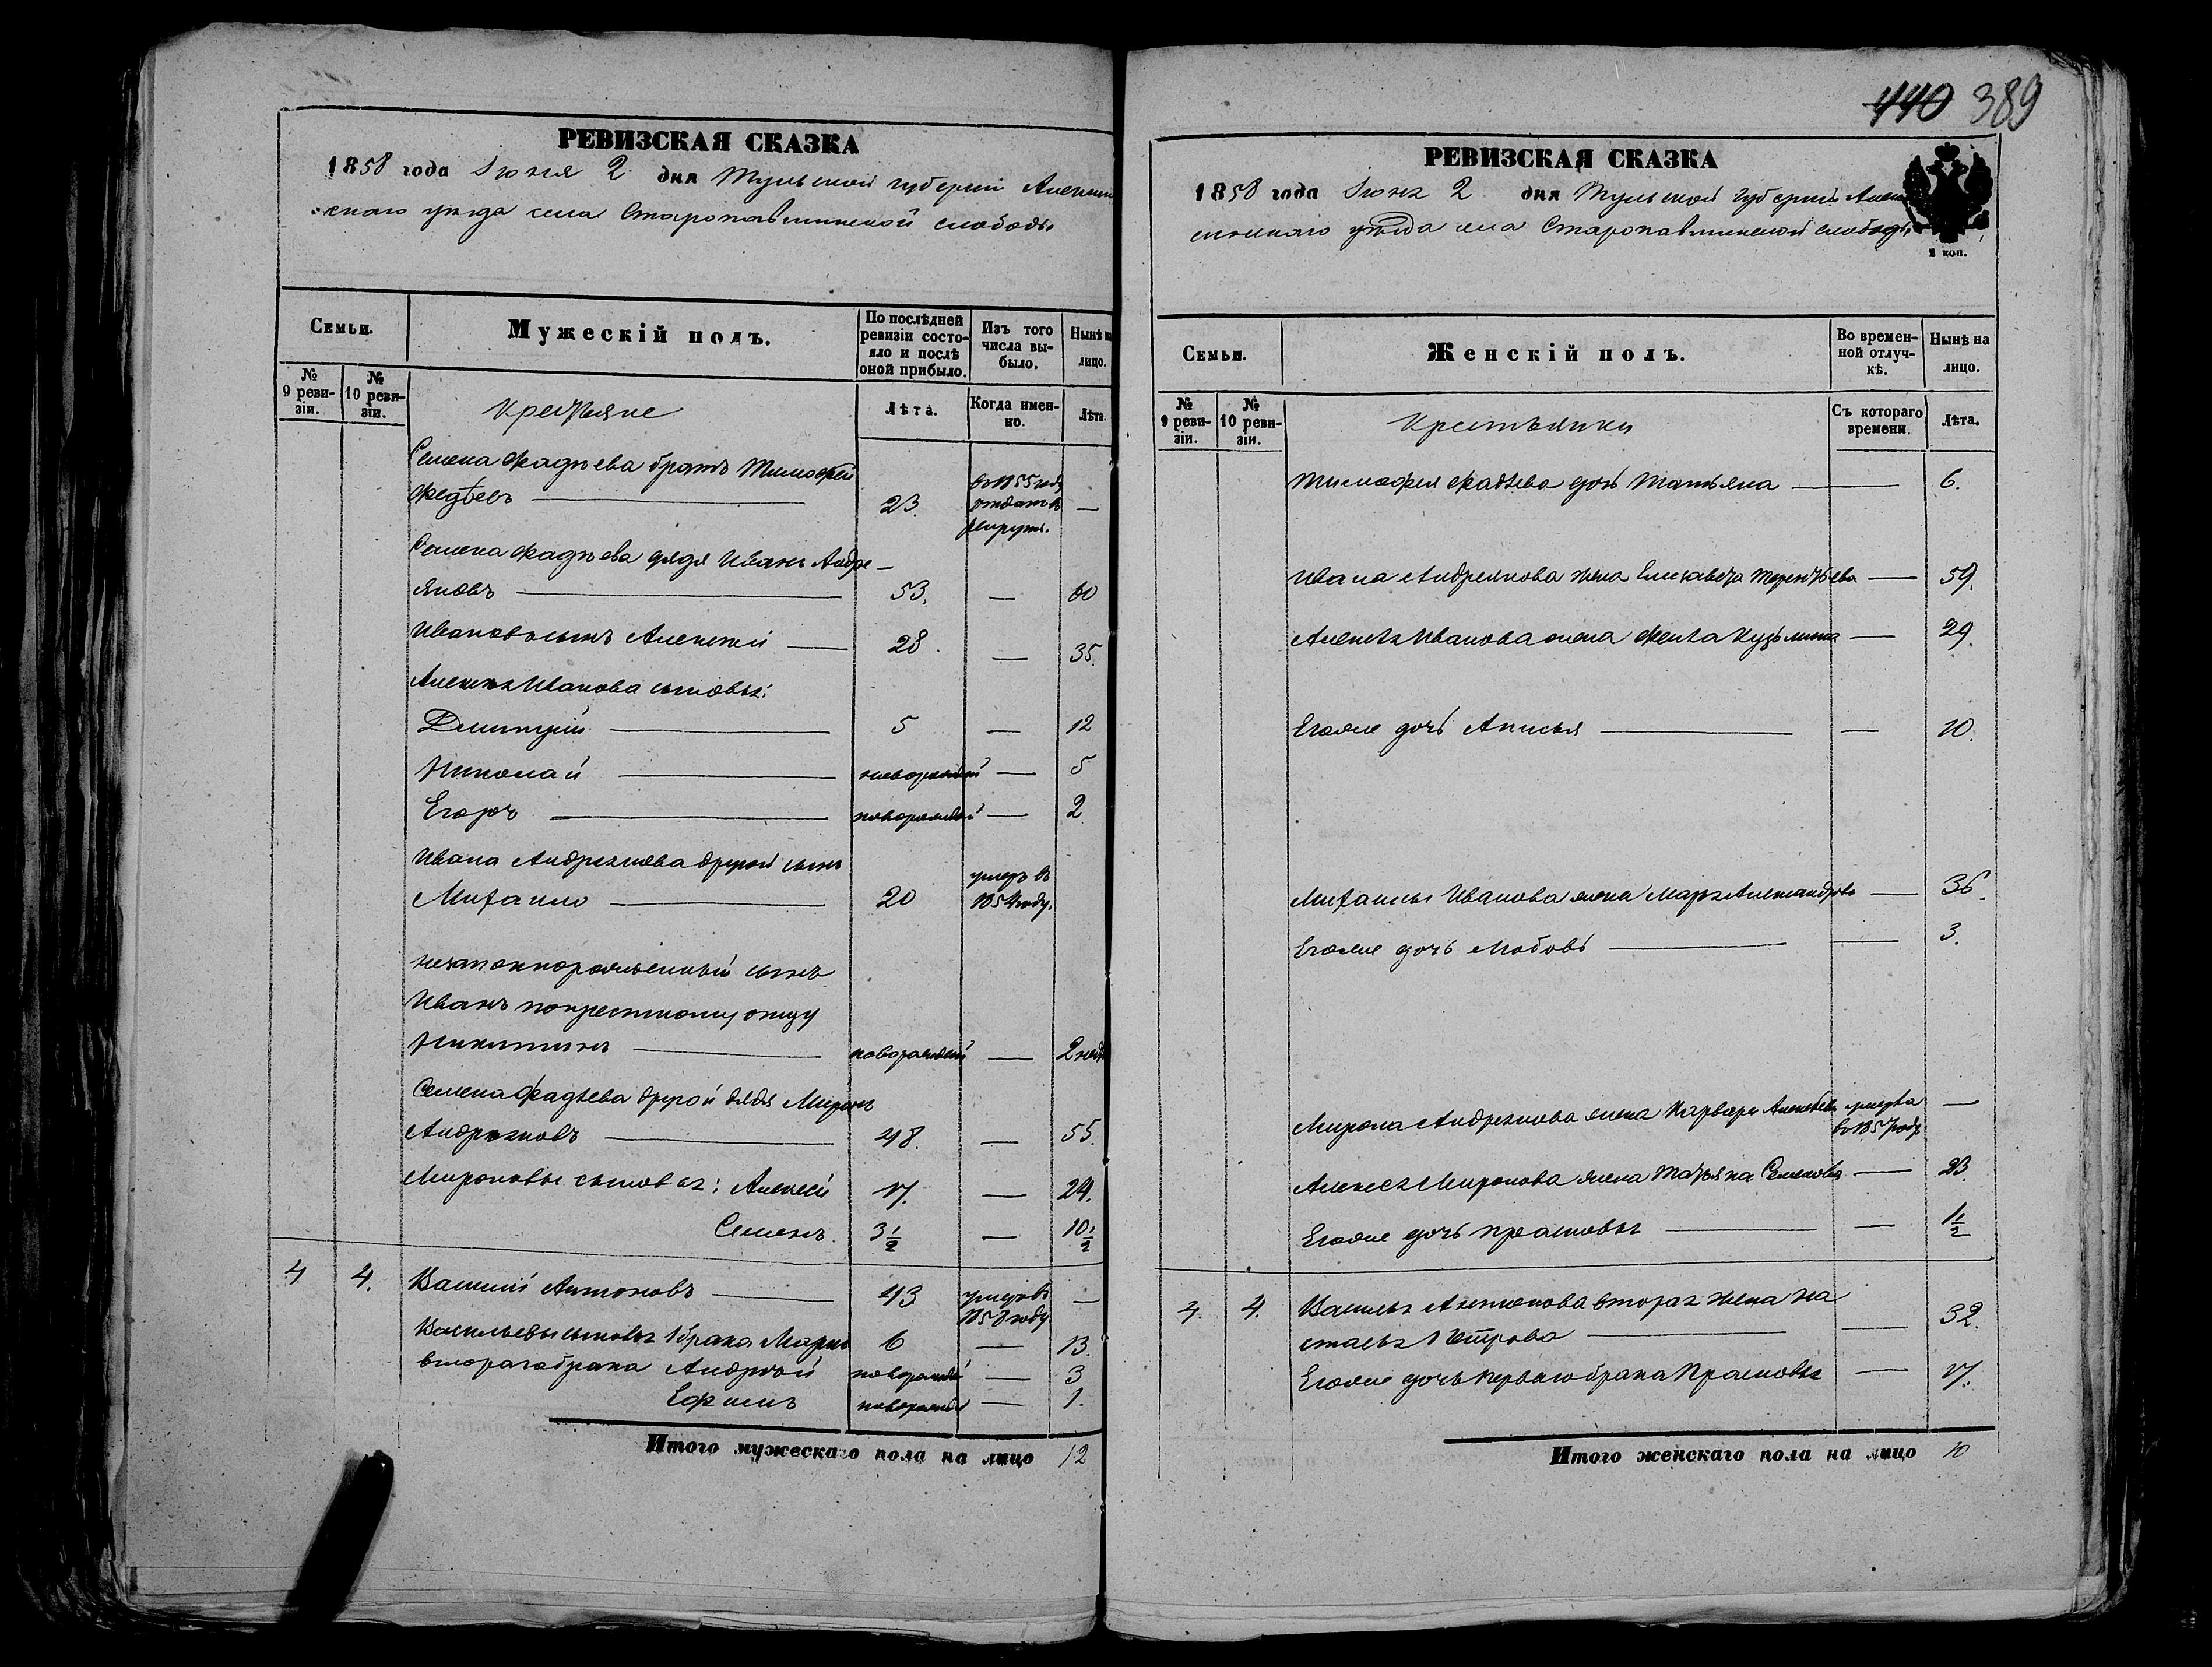 РЕВИЗСКАЯ СКАЗКА
1858 года Iюня 2 дня Тульской губернiи Алексин
скаго уѣзда села Старопавшинской слободы
Семьи.
Мужескiй полъ.
По послѣдней ревизiи состояло и послѣ оной прибыло.
Изъ того числа выбыло.
Нынѣ на лицо.
№ 9 ревизiи.
№ 10 ревизiи.
Крестьяне
Лѣта.
Когда именно.
Лѣта.
Семена Фадѣева братъ Тимофей
Фадѣевъ 23. въ 1855 году отданъ въ рекруты. —
Семена Фадѣева дядя Иванъ Андре
яновъ 53. — 60
Ивановъ сынъ Алексѣй 28. — 35.
Алексѣя Иванова сыновья:
Дмитрiй 5 — 12
Николай новорожденый — 5
Егоръ новорожденый — 2
Ивана Андреянова другой сынъ
Михайло 20 умеръ въ 1854 году.
незаконнорожденный сынъ
Иванъ по крестному отцу
Никитинъ новорожденый — 2 недѣ
Семена Фадѣева другой дядя Миронъ
Андреяновъ 48. — 55.
Мироновы сыновья: Алексѣй 17. — 24.
Семенъ. 3½ — 10½
4 4. Василiй Антоновъ 43 умеръ въ 1858 году —
Васильевы сыновья 1 брака Марко 6 — 13.
втораго брака Андрей новорожденый — 3
Ефимъ новорожденый — 1.
Итого мужескаго пола на лицо 12
440 389
РЕВИЗСКАЯ СКАЗКА
1858 года Iюня 2 дня Тульской губернiи Алек
синскаго уѣзда села Старопавшинской слободы
2 коп.
Семьи.
Женскiй полъ.
Во временной отлучкѣ.
Нынѣ на лицо.
№ 9 ревизiи.
№ 10 ревизiи.
Крестьянки
Съ котораго времени.
Лѣта.
Тимофея Фадѣева дочь Татьяна — 6.
Ивана Андреянова жена Елизавета Терентьева — 59.
Алексѣя Иванова жена Фекла Кузьмина — 29.
Егоже дочь Анисья — 10.
Михайлы Иванова жена Марья Александрова — 36.
Егоже дочь Любовь — 3.
Мирона Андреянова жена Варвара Алексѣева умерла въ 1857 году —
Алексѣя Миронова жена Татьяна Семенова — 23.
Егоже дочь Прасковья — 1½
4. 4. Василья Антонова вторая жена На
стасья Петрова — 32.
Егоже дочь перваго брака Прасковья — 17.
Итого женскаго пола на лицо 10